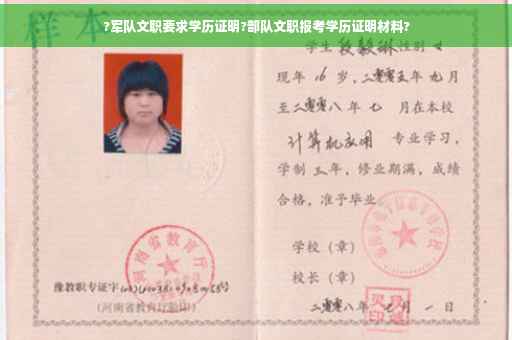 ?军队文职要求学历证明?部队文职报考学历证明材料?
样本
学生段毅琳性别女
现年16岁,二零零五年九月
至二零零八年七月在本校
计算机应用专业学习,
学制三年,修业期满,成绩
合格,准予毕业
学校(章)
校长(章)
二零零八年 月一日
河南省教育厅
豫教职专证字
(河南省教育厅验印)